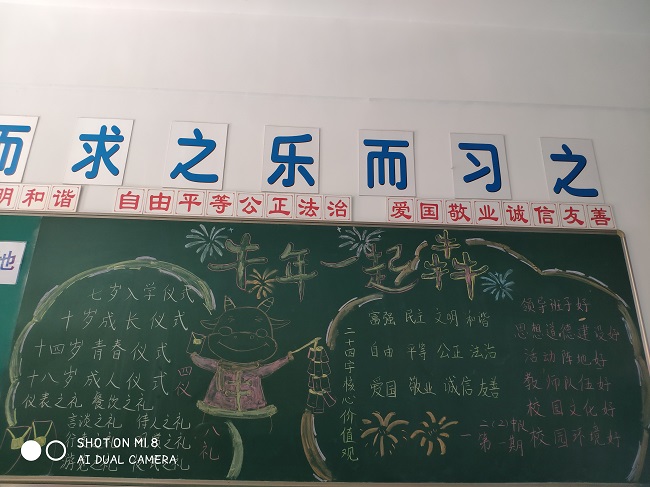 而求之乐而习之
明和谐 自由平等公正法治 爱国敬业诚信友善
地
牛年一起犇
七岁入学仪式
十岁成长仪式
十四岁青春仪式
十八岁成人仪式
四仪
仪表之礼 餐饮之礼
言谈之礼 待人之礼
八礼
二十四字核心价值观
富强 民主 文明 和谐
自由 平等 公正 法治
爱国 敬业 诚信 友善
领导班子好
思想道德建设好
活动阵地好
教师队伍好
校园文化好
校园环境好
第一期
SHOT ON MI 8
AI DUAL CAMERA